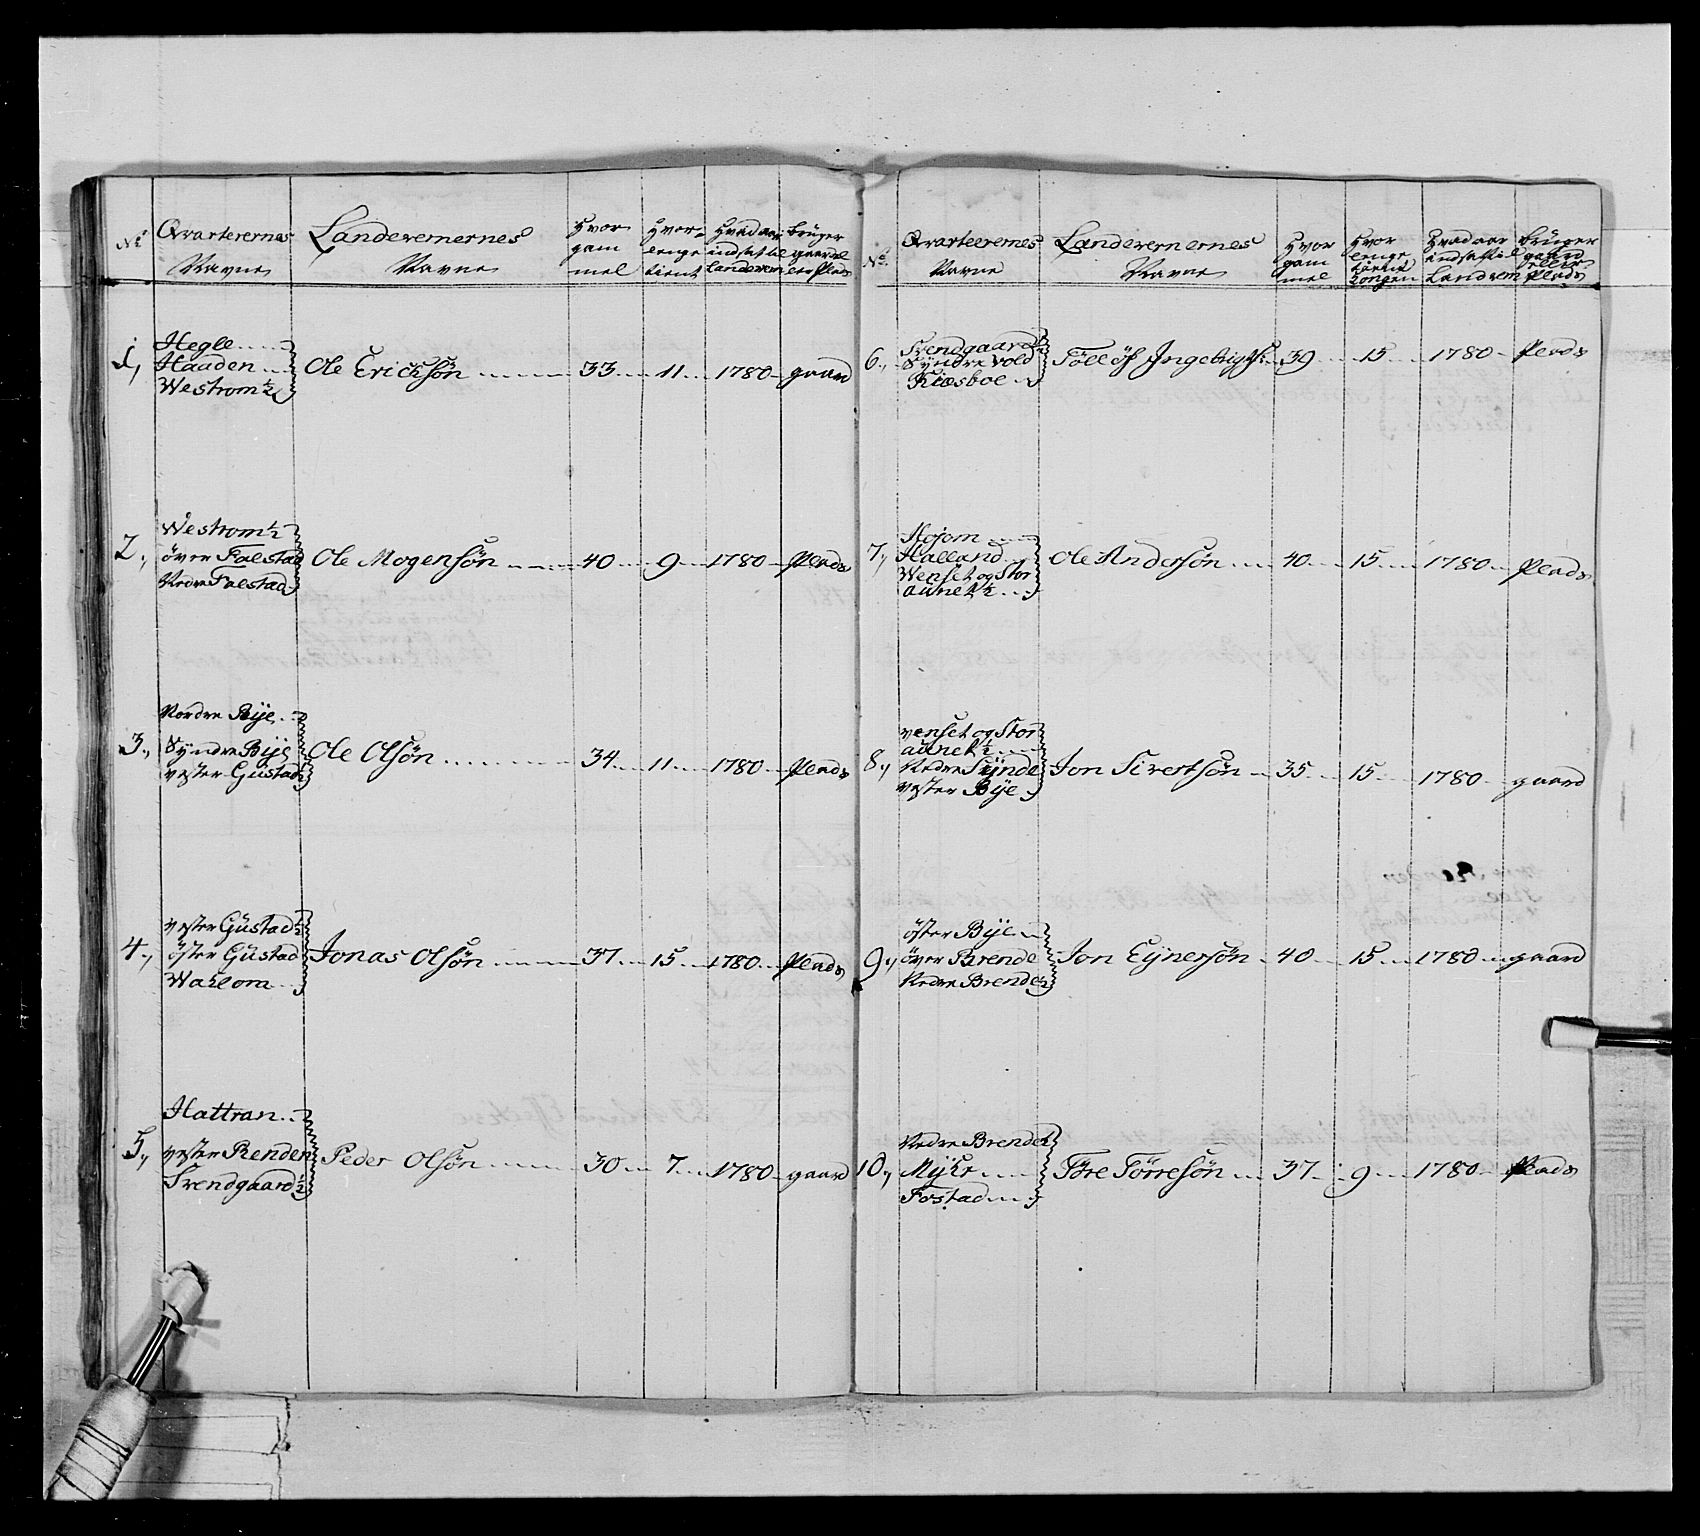 No Qvarterernes Navne Landevernernes Navne Hvor gammel Hvorlenge tient Hvad aar indsat til Landevern bruger gaard el eler Plads
1, Hegle
Haaden
Westrom ½
Ole Ericksön 33 11 1780 gaard
2, Westrom ½
över Falestad
Nedre Falestad
Ole Mogensön 40 9 1780 Plads
3, Nordre Bije
Syndre Bije
vester Gustad ½
Ole Olsön 34 11 1780 Plads
4, vester Gustad ½
öster Gustad
Wateom
Jonas Olsön 37 15 1780 Plads
5, Hattran
vester Renden
Svendgaard ½
Peder Olsön 30 7 1780 gaard
No Qvarteerernes Navne Landevernernes Navne Hvor gammel Hvor lenge tient Kongen Hvad aar indsat til Landvern bruger gaard eller Plads
6, Svendgaard ½
Syndre vold
Kiesboe
Töllöf Ingebrigts: 39 15 1780 Plads
7, Hojom
Halland
Wenset og Stor
aunet ½
Ole Andersön 40 15 1780 Plads
8, venset og Stor
aunet ½
Nedre Synde
vester Bije
Jon Sivertsön 35 15 1780 gaard
9, öster Bije
över Brende
Nedre Brende ½
Jon Eijnersön 40 15 1780 gaard
10, Nedre Brende ½
Mijhr
Fostad
Tore Törresön 37 9 1780 Plads